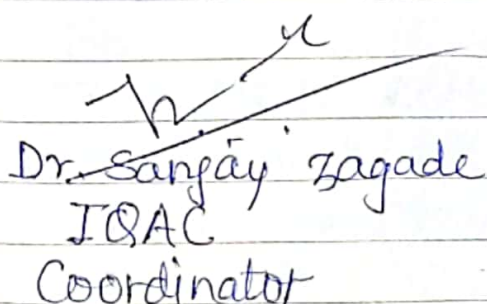 Dr. Sanjay Zagade
IQAC
Coordinator